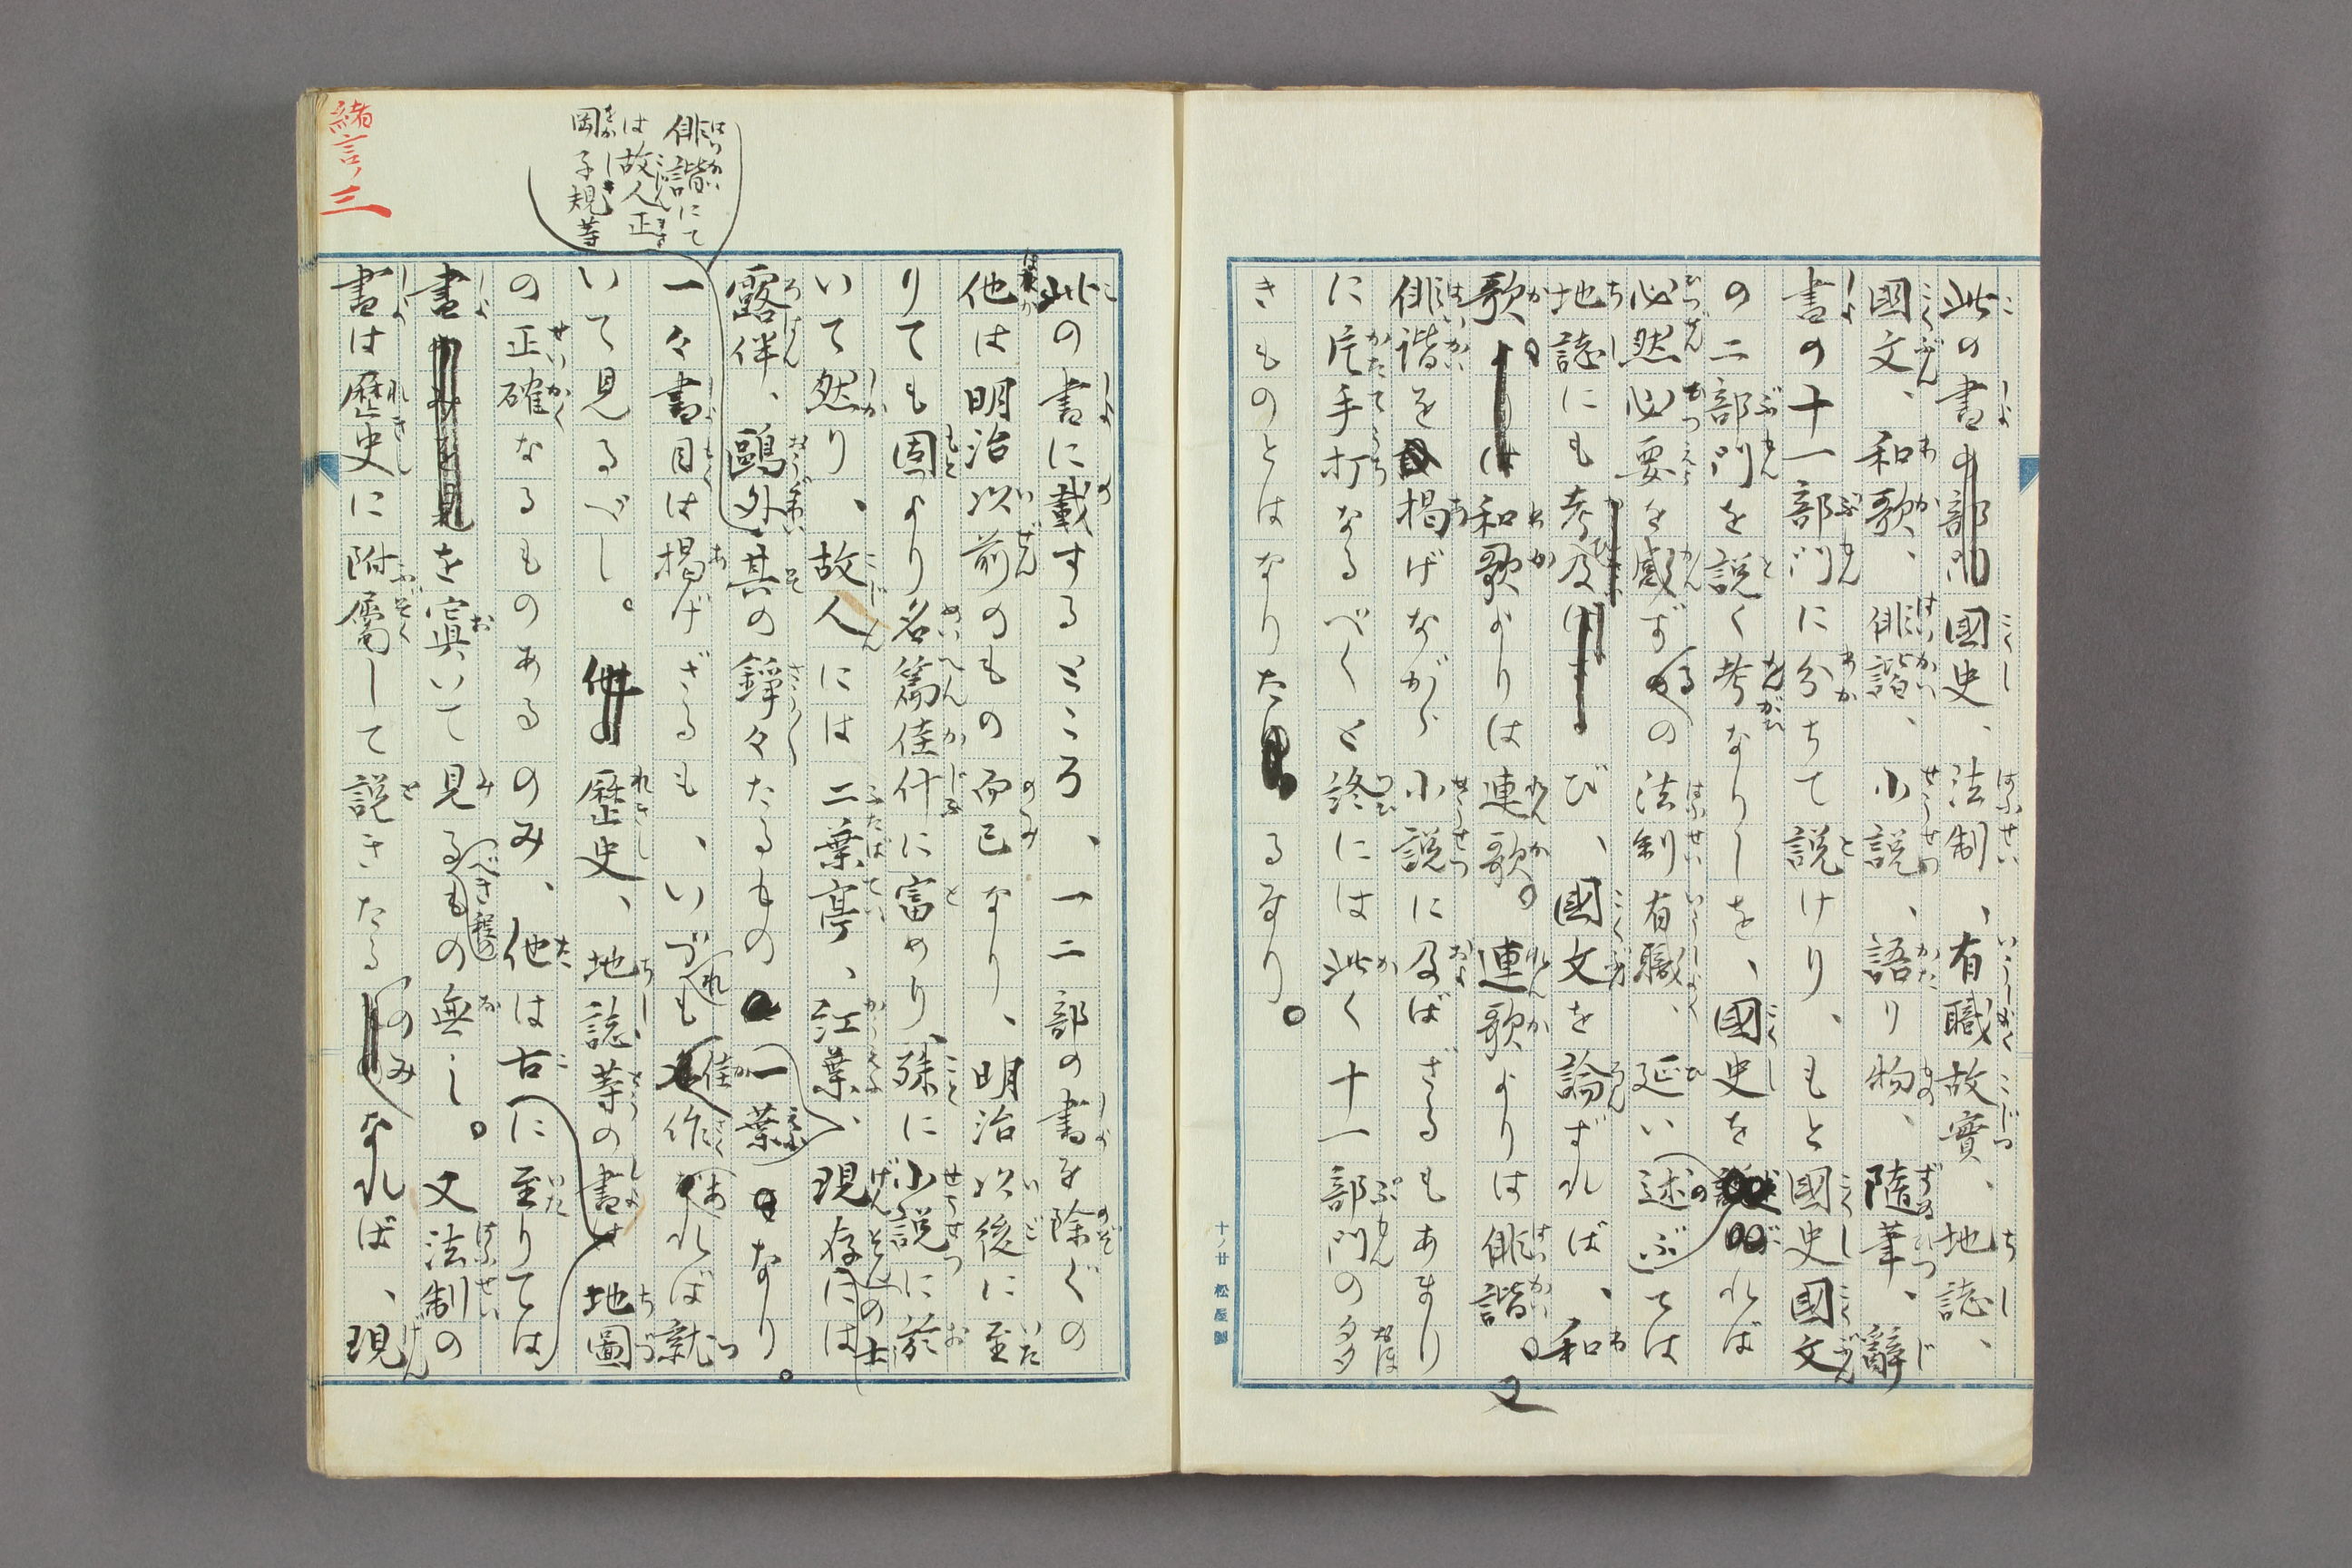 此の書、國史、法制、有職故實、地誌、
國文、和歌、俳諧、小說、語り物、隨筆、辭
書の十一部門に分ちて說けり、もと國史國文
の二部門を說く考なりしを、國史を述ぶれば
必然必要を感ずるの法制有職、延いの述ぶては
地誌にも考及び、國文を論ずれば、和
歌。和歌よりは連歌。連歌よりは俳諧。又
俳諧を揭げながら小說に及ばざるもあまり
に片手打なるべくと終には此く十一部門の多
きものとはなりたるなり。
十ノ廿 松屋製
此の書に載するところ、一二部の書を除くの
他は明治以前のもの而已なり、明治以後に至
りても固より名篇佳什に富めり、殊に小說に於
いて然り、故人には二葉亭、紅葉、一葉、現存の士には
露伴、鷗外、其の錚々たるものなり。
俳諧にて
は故人正
岡子規等
一々書目は揭げざるも、いづれも佳作あれば就
いて見るべし。歷史、地誌等の書は地圖
の正確なるものあるのみ、他は古に至りては
書を寘いて見るべき程のもの無し。又法制の
書は歷史に附屬して說きたるのみなれば、現
緒言ノ三